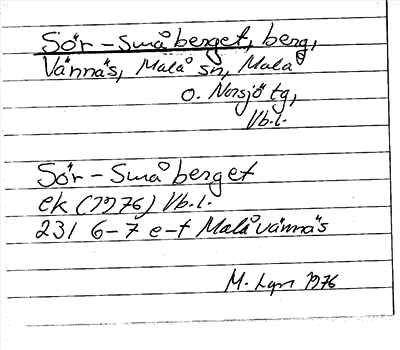 Sör-Småberget, berg,
Vännäs, Malå sn, Malå
o. Norsjö tg,
Vb.l.
Sör-Småberget
ek (1976) Vb.l.
231 6-7 e-f Malåvännäs
M. Lgn 1976